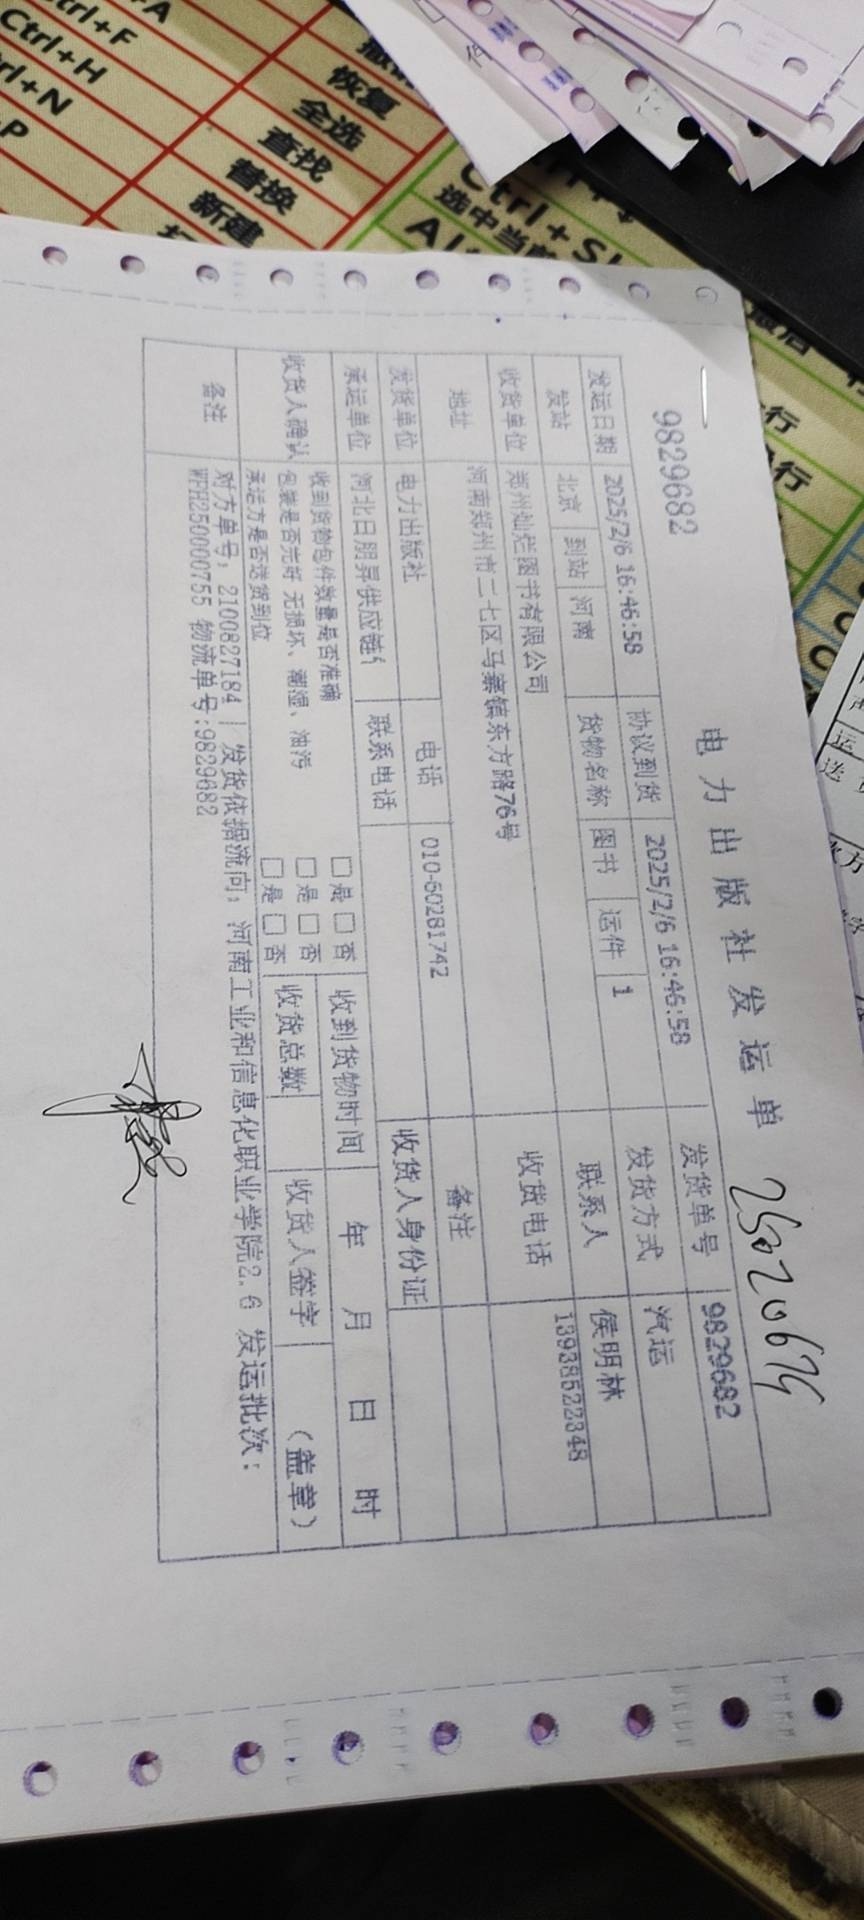 电力出版社发运单
25020674
9829682
发货单号 9829682
发运日期 2025/2/6 16:46:58 协议到货 2025/2/6 16:46:58 发货方式 汽运
发站 北京 到站 河南 货物名称 图书 运件 1 联系人 侯明林
收货单位 郑州灿烂图书有限公司 收货电话 13938522348
地址 河南郑州市二七区马寨镇东方路76号 备注
发货单位 电力出版社 电话 010-60281742 收货人身份证
承运单位 河北日朋昇供应链 联系电话
收货人确认 收到货物包件数量是否准确 □是□否 收到货物时间 年 月 日 时
包装是否完好 无损坏、潮湿、油污 □是□否 收货总数 收货人签字 (盖章)
承运方是否送货到位 □是□否
备注 对方单号：2100827184 | 发货依据流向：河南工业和信息化职业学院2.6 发运批次：
WPH250000755 物流单号:9829682
Ctrl+F
Ctrl+H
Ctrl+N
+P
恢复
全选
查找
替换
新建
选中当前